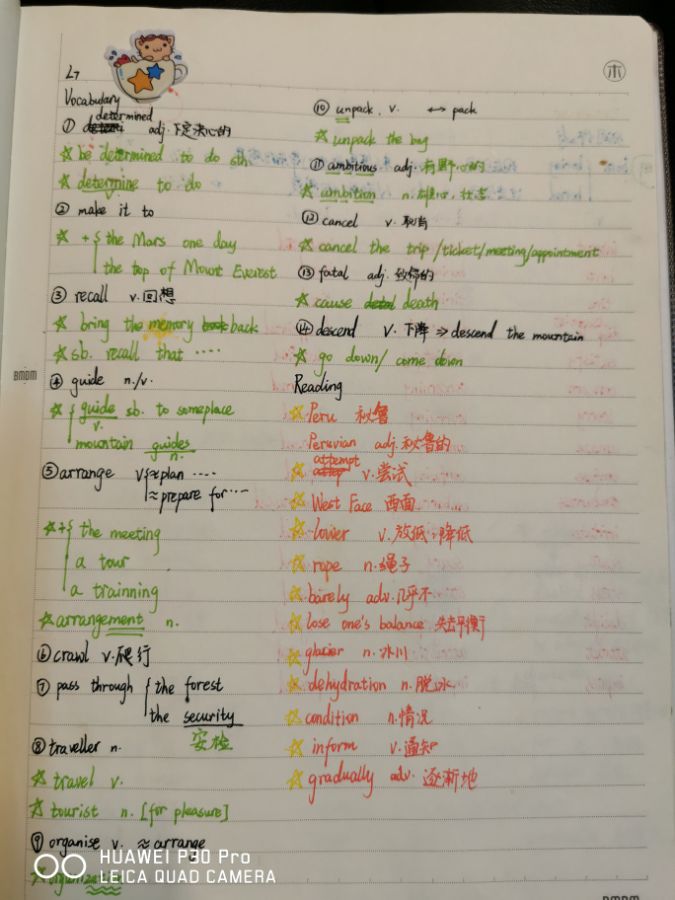 L7
木
Vocabulary
determined
① adj. 下定决心的
☆ be determined to do sth
☆ determine to do
② make it to
☆ + { the Mars one day
the top of Mount Everest
③ recall v.回想
☆ bring the memory back
☆ sb. recall that ····
④ guide n./v.
☆ { guide sb. to someplace
v.
mountain guides
n.
⑤ arrange v { ≈plan ····
≈ prepare for ···
☆ + { the meeting
a tour
a trainning
☆ arrangement n.
⑥ crawl v.爬行
⑦ pass through { the forest
the security
安检
⑧ traveller n.
☆ travel v.
☆ tourist n. [for pleasure]
⑨ organise v. ≈ arrange
☆ organization
⑩ unpack. v. ↔ pack
☆ unpack the bag
⑪ ambitious adj. 有野心的
☆ ambition n. 雄心，壮志
⑫ cancel v. 取消
☆ cancel the trip /ticket/meeting/appointment
⑬ fatal adj. 致命的
☆ cause death
⑭ descend v. 下降 ⇒ descend the mountain
☆ go down/ come down
Reading
☆ Peru 秘鲁
Peruvian adj. 秘鲁的
attempt
☆ v.尝试
☆ West Face 西面
☆ lower v. 放低，降低
☆ rope n.绳子
☆ barely adv.几乎不
☆ lose one's balance 失去平衡
☆ glacier n. 冰川
☆ dehydration n. 脱水
☆ condition n.情况
☆ inform v.通知
☆ gradually adv. 逐渐地
BMDM
HUAWEI P30 Pro
LEICA QUAD CAMERA